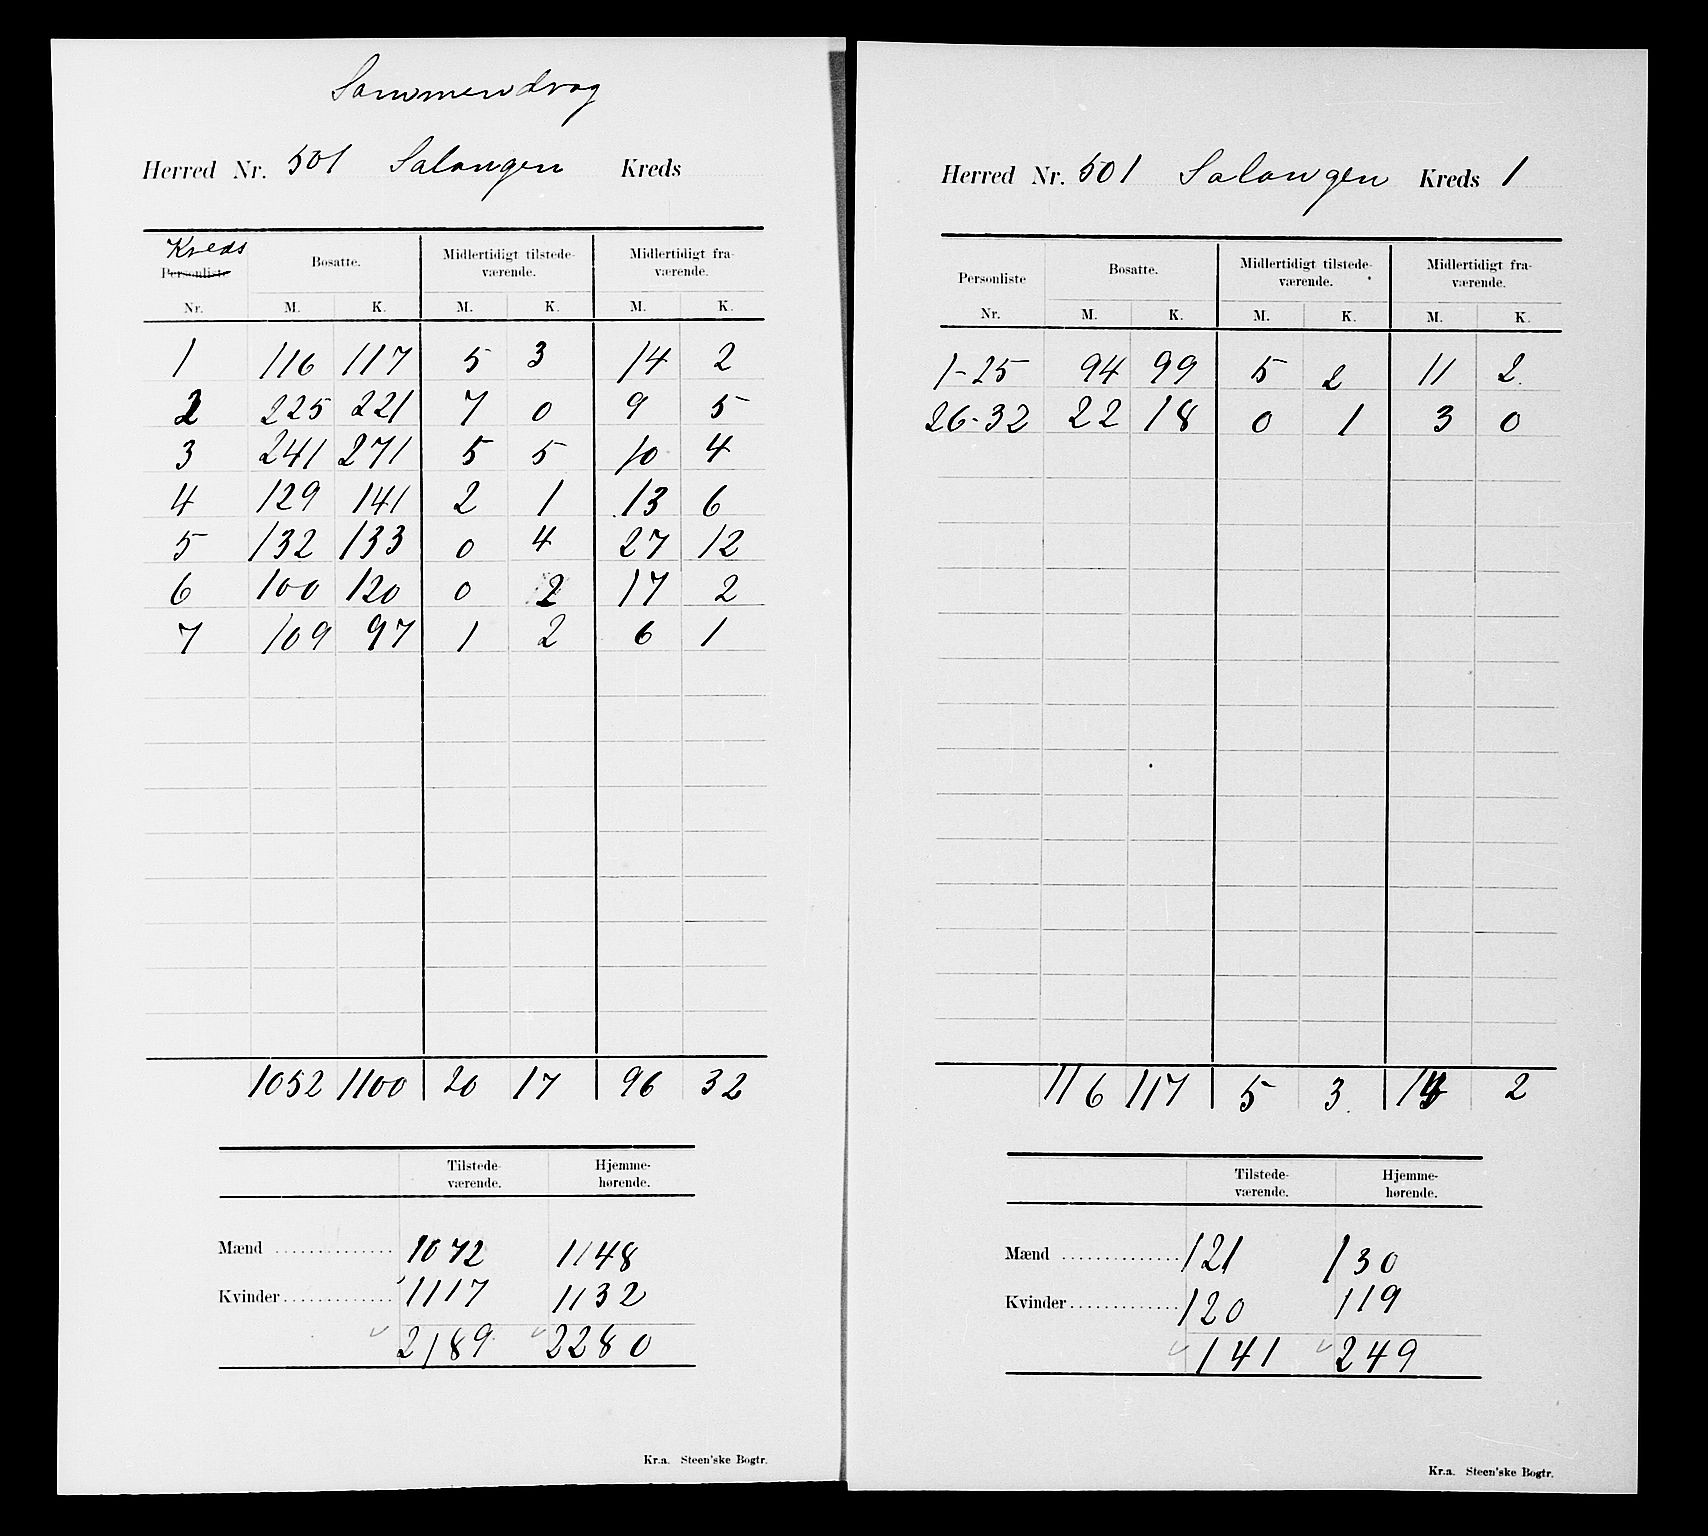 Sammendrag
Herred Nr. 501 Salangen Kreds
Kreds
Personliste Bosatte. Midlertidigt tilstede- Midlertidigt fra-
værende. værende.
Nr. M. K. M. K. M. K.
1 116 117 5 3 14 2
2 225 221 7 0 9 5
3 241 271 5 5 10 4
4 129 141 2 1 13 6
5 132 133 0 4 27 12
6 100 120 0 2 17 2
7 109 97 1 2 6 1
1052 1100 20 17 96 32
Tilstede- Hjemme-
værende. hørende.
Mænd .............. 1072 1148
Kvinder ............. 1117 1132
2189 2280
Kr.a. Steen'ske Bogtr.
Herred Nr. 501 Salangen Kreds 1
Personliste Bosatte. Midlertidigt tilstede- Midlertidigt fra-
værende. værende.
Nr. M. K. M. K. M. K.
1-25 94 99 5 2 11 2
26-32 22 18 0 1 3 0
116 117 5 3 14 2
Tilstede- Hjemme-
værende. hørende.
Mænd .............. 121 130
Kvinder ............. 120 119
141 249
Kr.a. Steen'ske Bogtr.